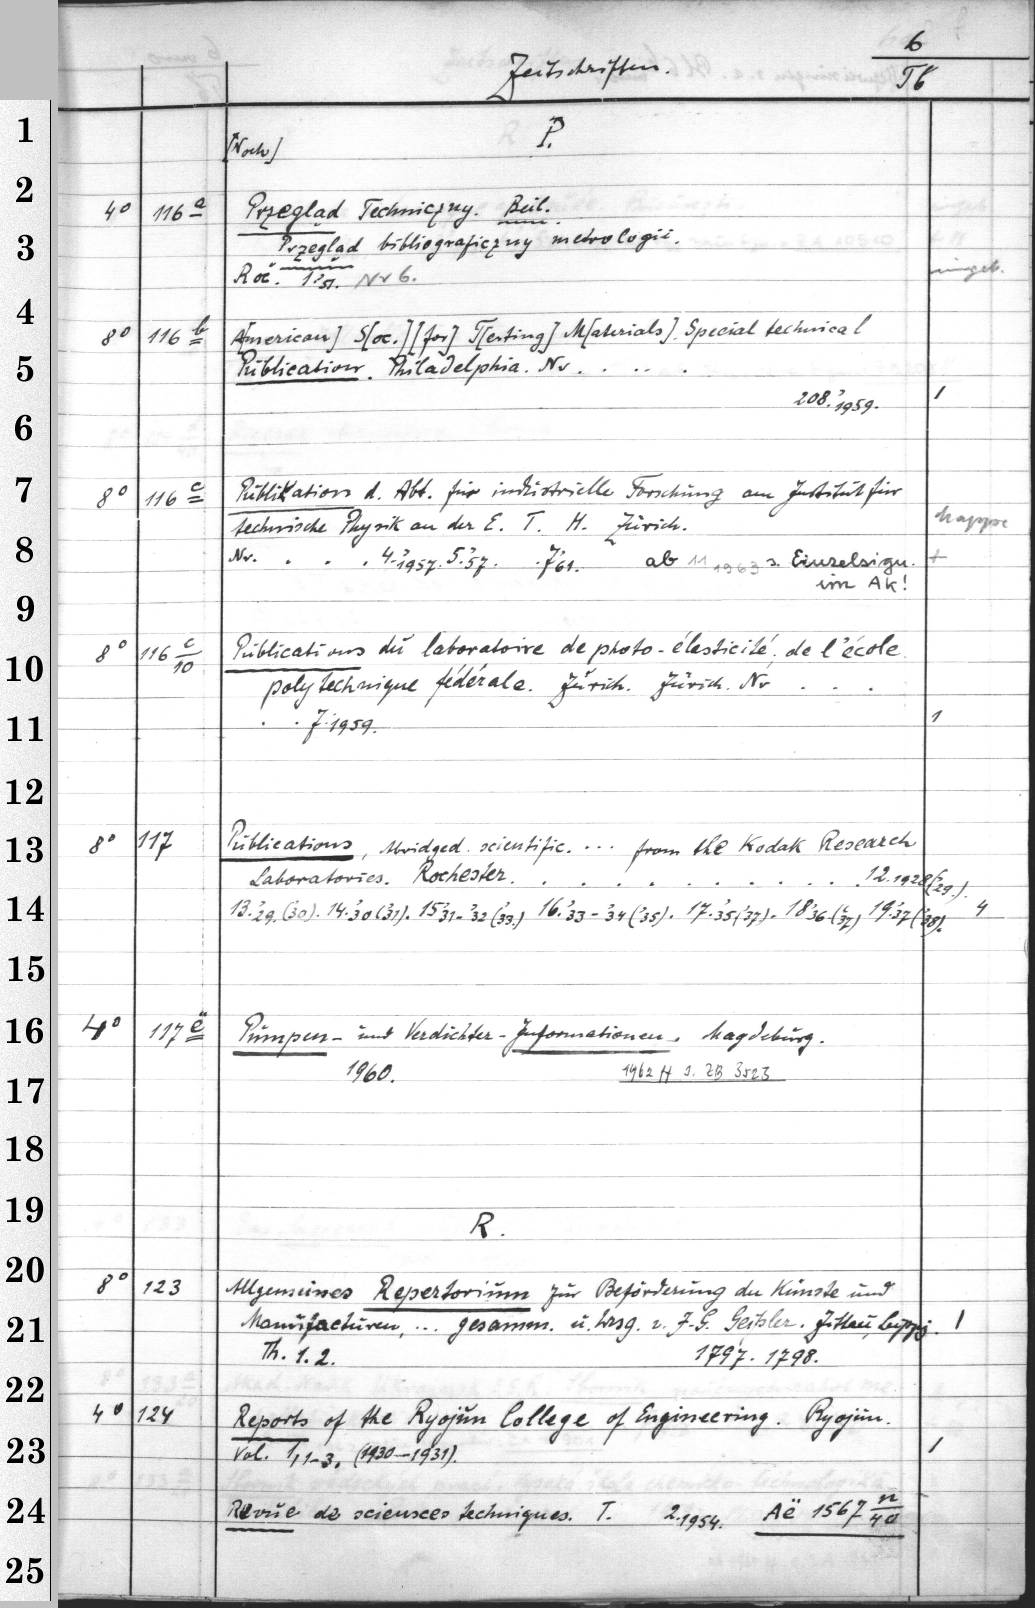 6
Zeitschriften. Tb
1
[Noch] P.
2
4° 116 a Przegląd Techniczny. Beil.
3 Przegląd bibliograficzny metrologii.
Roč. 1.'51. Nr 6.
4
8° 116 b A[merican] S[oc.] [for] T[esting] M[aterials]. Special technical
5 Publication. Philadelphia. Nr . . . . .
208.'1959. 1
6
7 8° 116 c Publikation d. Abt. für industrielle Forschung am Institut für
technische Physik an der E. T. H. Zürich. Mappe
8 Nr. . . . 4.'1957. 5.'57. . 7.'61. ab 11 1963 s. Einzelsign. +
im AK!
9
8° 116 c/10 Publications du laboratoire de photo-élasticité, de l'école
10 polytechnique fédérale. Zürich. Zürich. Nr . . .
11 . . 7.'1959. 1
12
13 8° 117 Publications, Abridged scientific. ... from the Kodak Research
Laboratories. Rochester. . . . . . . . . . . . 12.1928('29.).
14 13.'29.('30). 14.'30('31). 15'31-'32('33.) 16.'33-'34('35). 17.'35('37). 18'36('37) 19.'37('38). 4
15
16 4° 117 ë Pumpen- und Verdichter-Informationen. Magdeburg.
1960. 1962 H s. ZB 3523
17
18
19 R.
20 8° 123 Allgemeines Repertorium zur Beförderung der Künste und
21 Manufacturen, ... gesamm. u. hrsg. v. J. G. Geißler. Zittau, Leipzig. 1
Th. 1. 2. 1797. 1798.
22
4° 124 Reports of the Ryojun College of Engineering. Ryojun.
23 Vol. 1,1-3. (1930-1931). 1
24 Revue de sciences techniques. T. 2.1954. Aë 1567 n/40
25